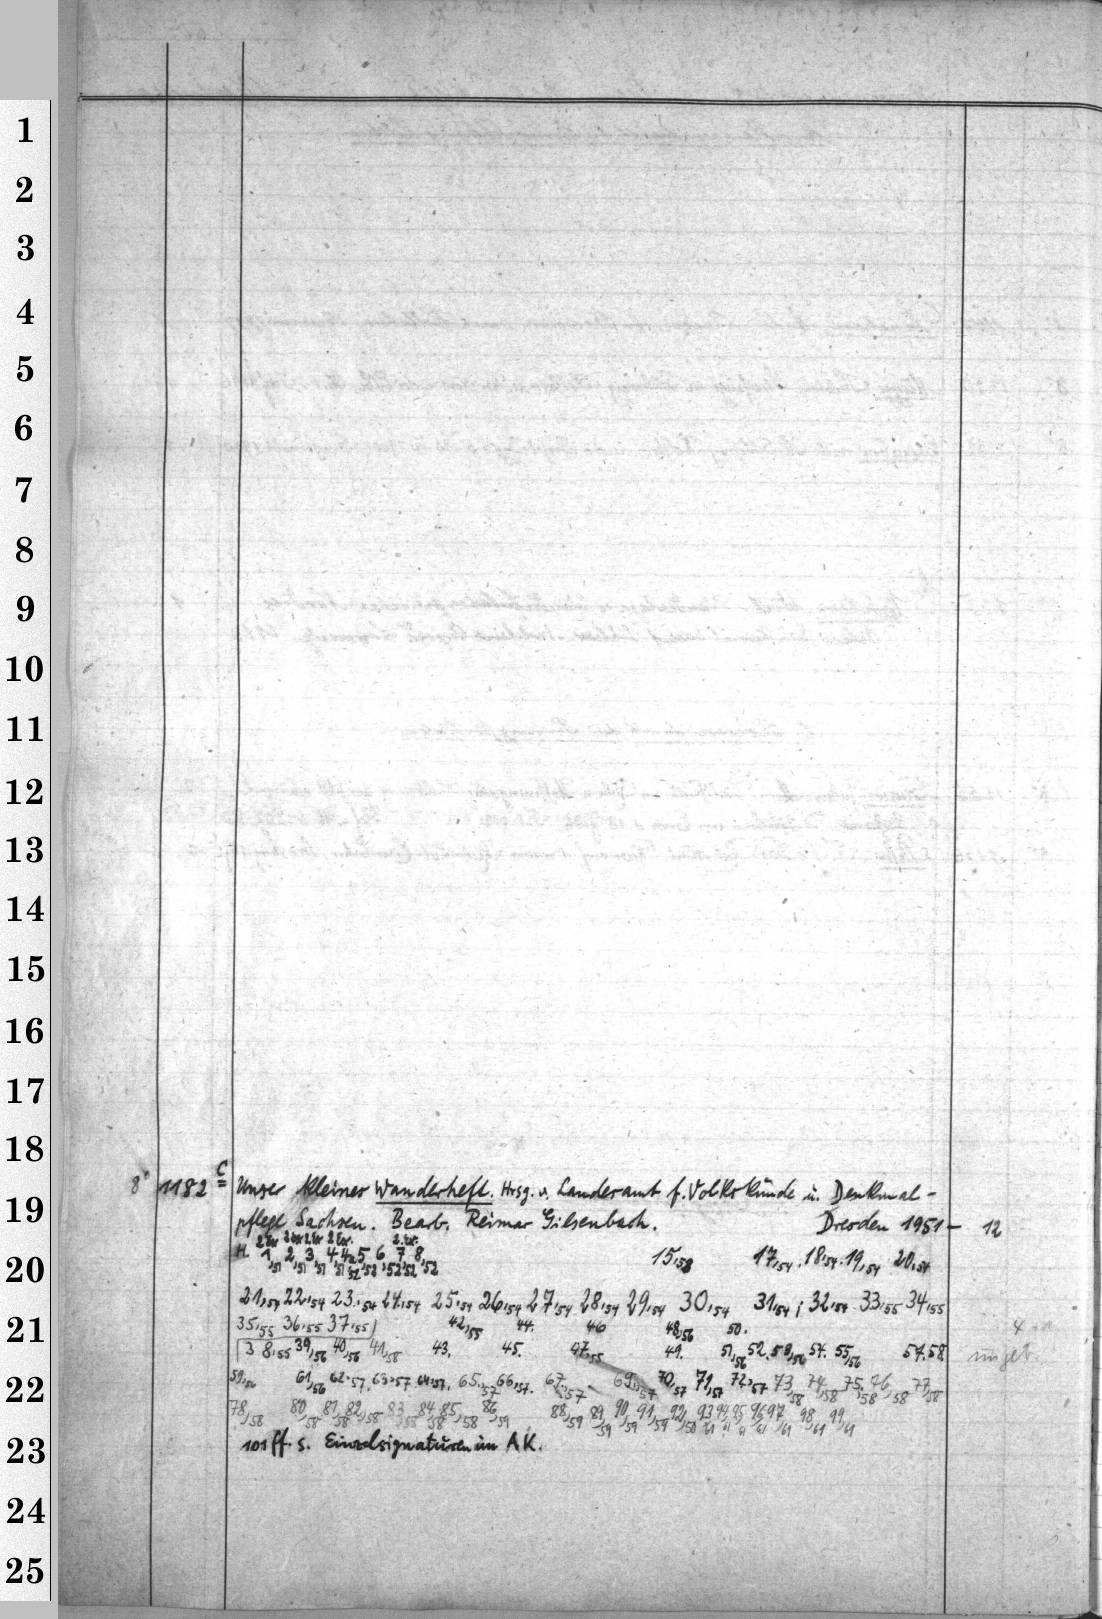 1
2
3
4
5
6
7
8
9
10
11
12
13
14
15
16
17
18
19
20
21
22
23
24
25
8° 1182 C Unser kleines Wanderheft. Hrsg. v. Landesamt f. Volkskunde u. Denkmal-
pflege Sachsen. Bearb. Reimar Gilsenbach. Dresden 1951 – 12
2 Ex 2 Ex 2 Ex 2 Ex. 2. Ex.
H. 1,51 2,51 3,51 4,51 4a,52 5,52 6,52 7,52 8,52 15,53 17,54. 18,54. 19,54 20,54
21,54 22,54 23,54 24,54 25,54 26,54 27,54 28,54 29,54 30,54 31,54; 32,54 33,55 34,55
35,55 36,55 37,55 42,55 44. 46 48,56 50.
38,55 39,56 40,56 41,58 43. 45. 47,55 49. 51,56 52. 53,56 54. 55,56 57.58 ungeb.
59,56 61,56 62,57. 63,57 64,57. 65,57 66,57. 67,57 69,57 70,57 71,57 72,57 73,58 74,58 75,58 76,58 77,58
78,58 80,58 81,58 82,58 83,58 84,58 85,58 86,59 88,59 89,59 90,59 91,59 92,50 93,61 94,61 95,61 96,61 97,61 98,61 99,61
101 ff. s. Einzelsignaturen im AK.